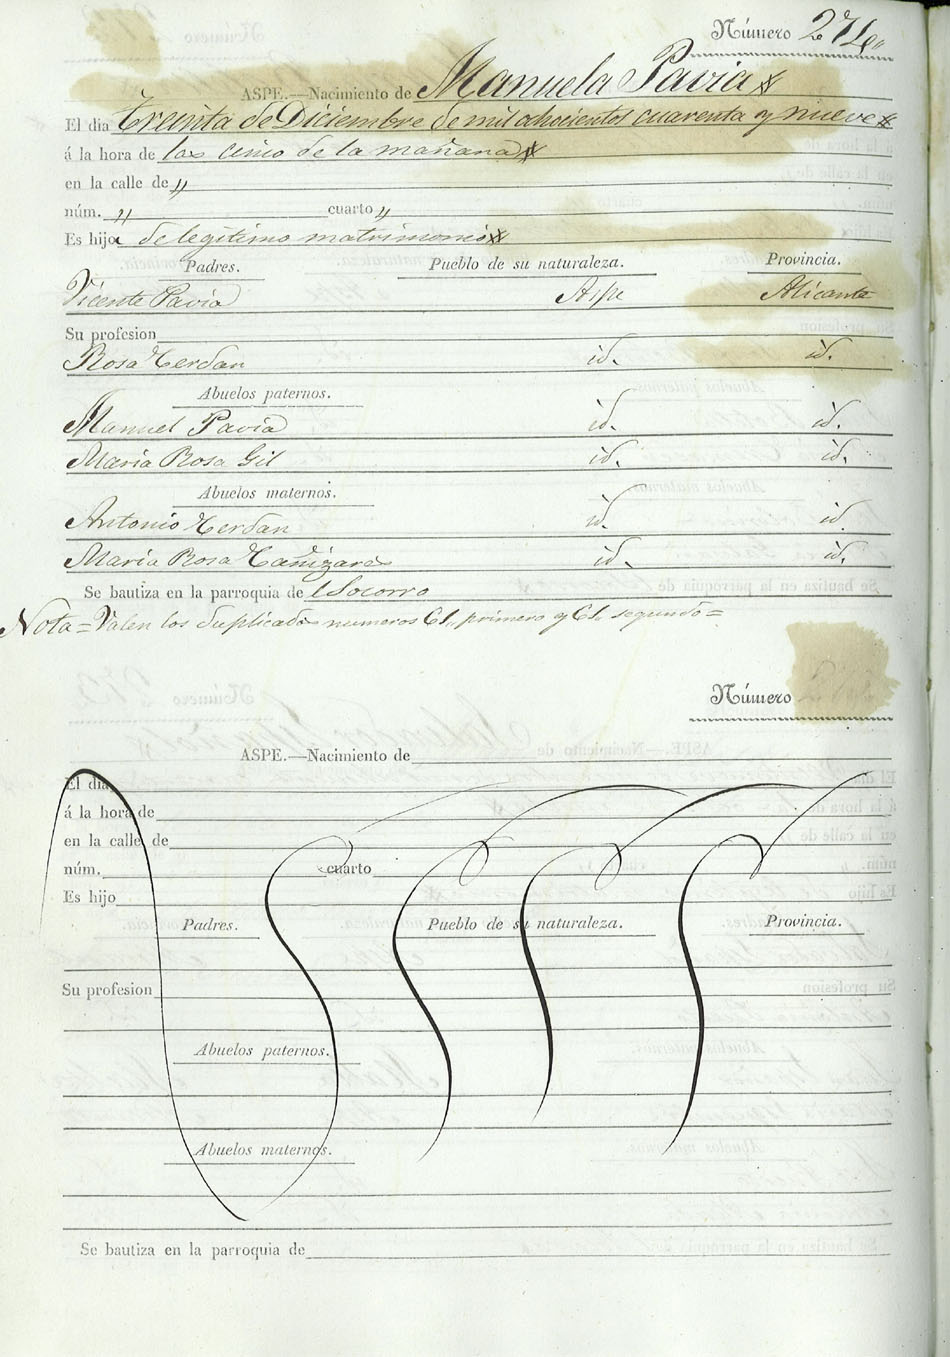 Número 274,,
ASPE.—Nacimiento de Manuela Pavia
El dia treinta de Diciembre de mil ochocientos cuarenta y nueve
á la hora de las cinco de la mañana
en la calle de ,,
núm. ,, cuarto ,,
Es hija de legitimo matrimonio
Padres. Pueblo de su naturaleza. Provincia.
Vicente Pavia Aspe Alicante
Su profesion
Rosa Cerdan id. id.
Abuelos paternos.
Manuel Pavia id. id.
Maria Rosa Gil id. id.
Abuelos maternos.
Antonio Cerdan id. id.
Maria Rosa Cañizares id. id.
Se bautiza en la parroquia de l Socorro
Nota = Valen los duplicados numeros 61,, primero y 61,, segundo =
Número
ASPE.—Nacimiento de
El dia
á la hora de
en la calle de
núm. cuarto
Es hijo
Padres. Pueblo de su naturaleza. Provincia.
Su profesion
Abuelos paternos.
Abuelos maternos.
Se bautiza en la parroquia de